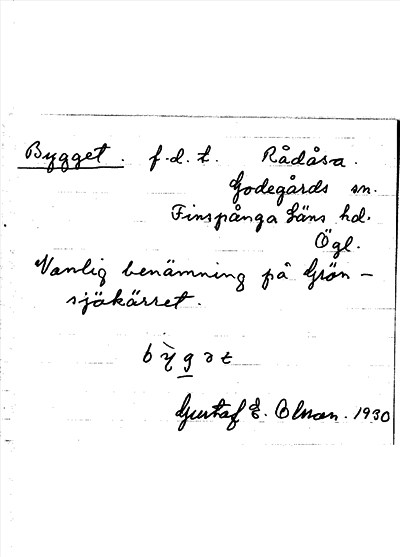 Bygget. f.d.t. Rådåsa.
Godegårds sn.
Finspånga Läns hd.
Ögl.
Vanlig benämning på Grön-
sjökärret.
bỳgət
Gustaf E. Olsson. 1930